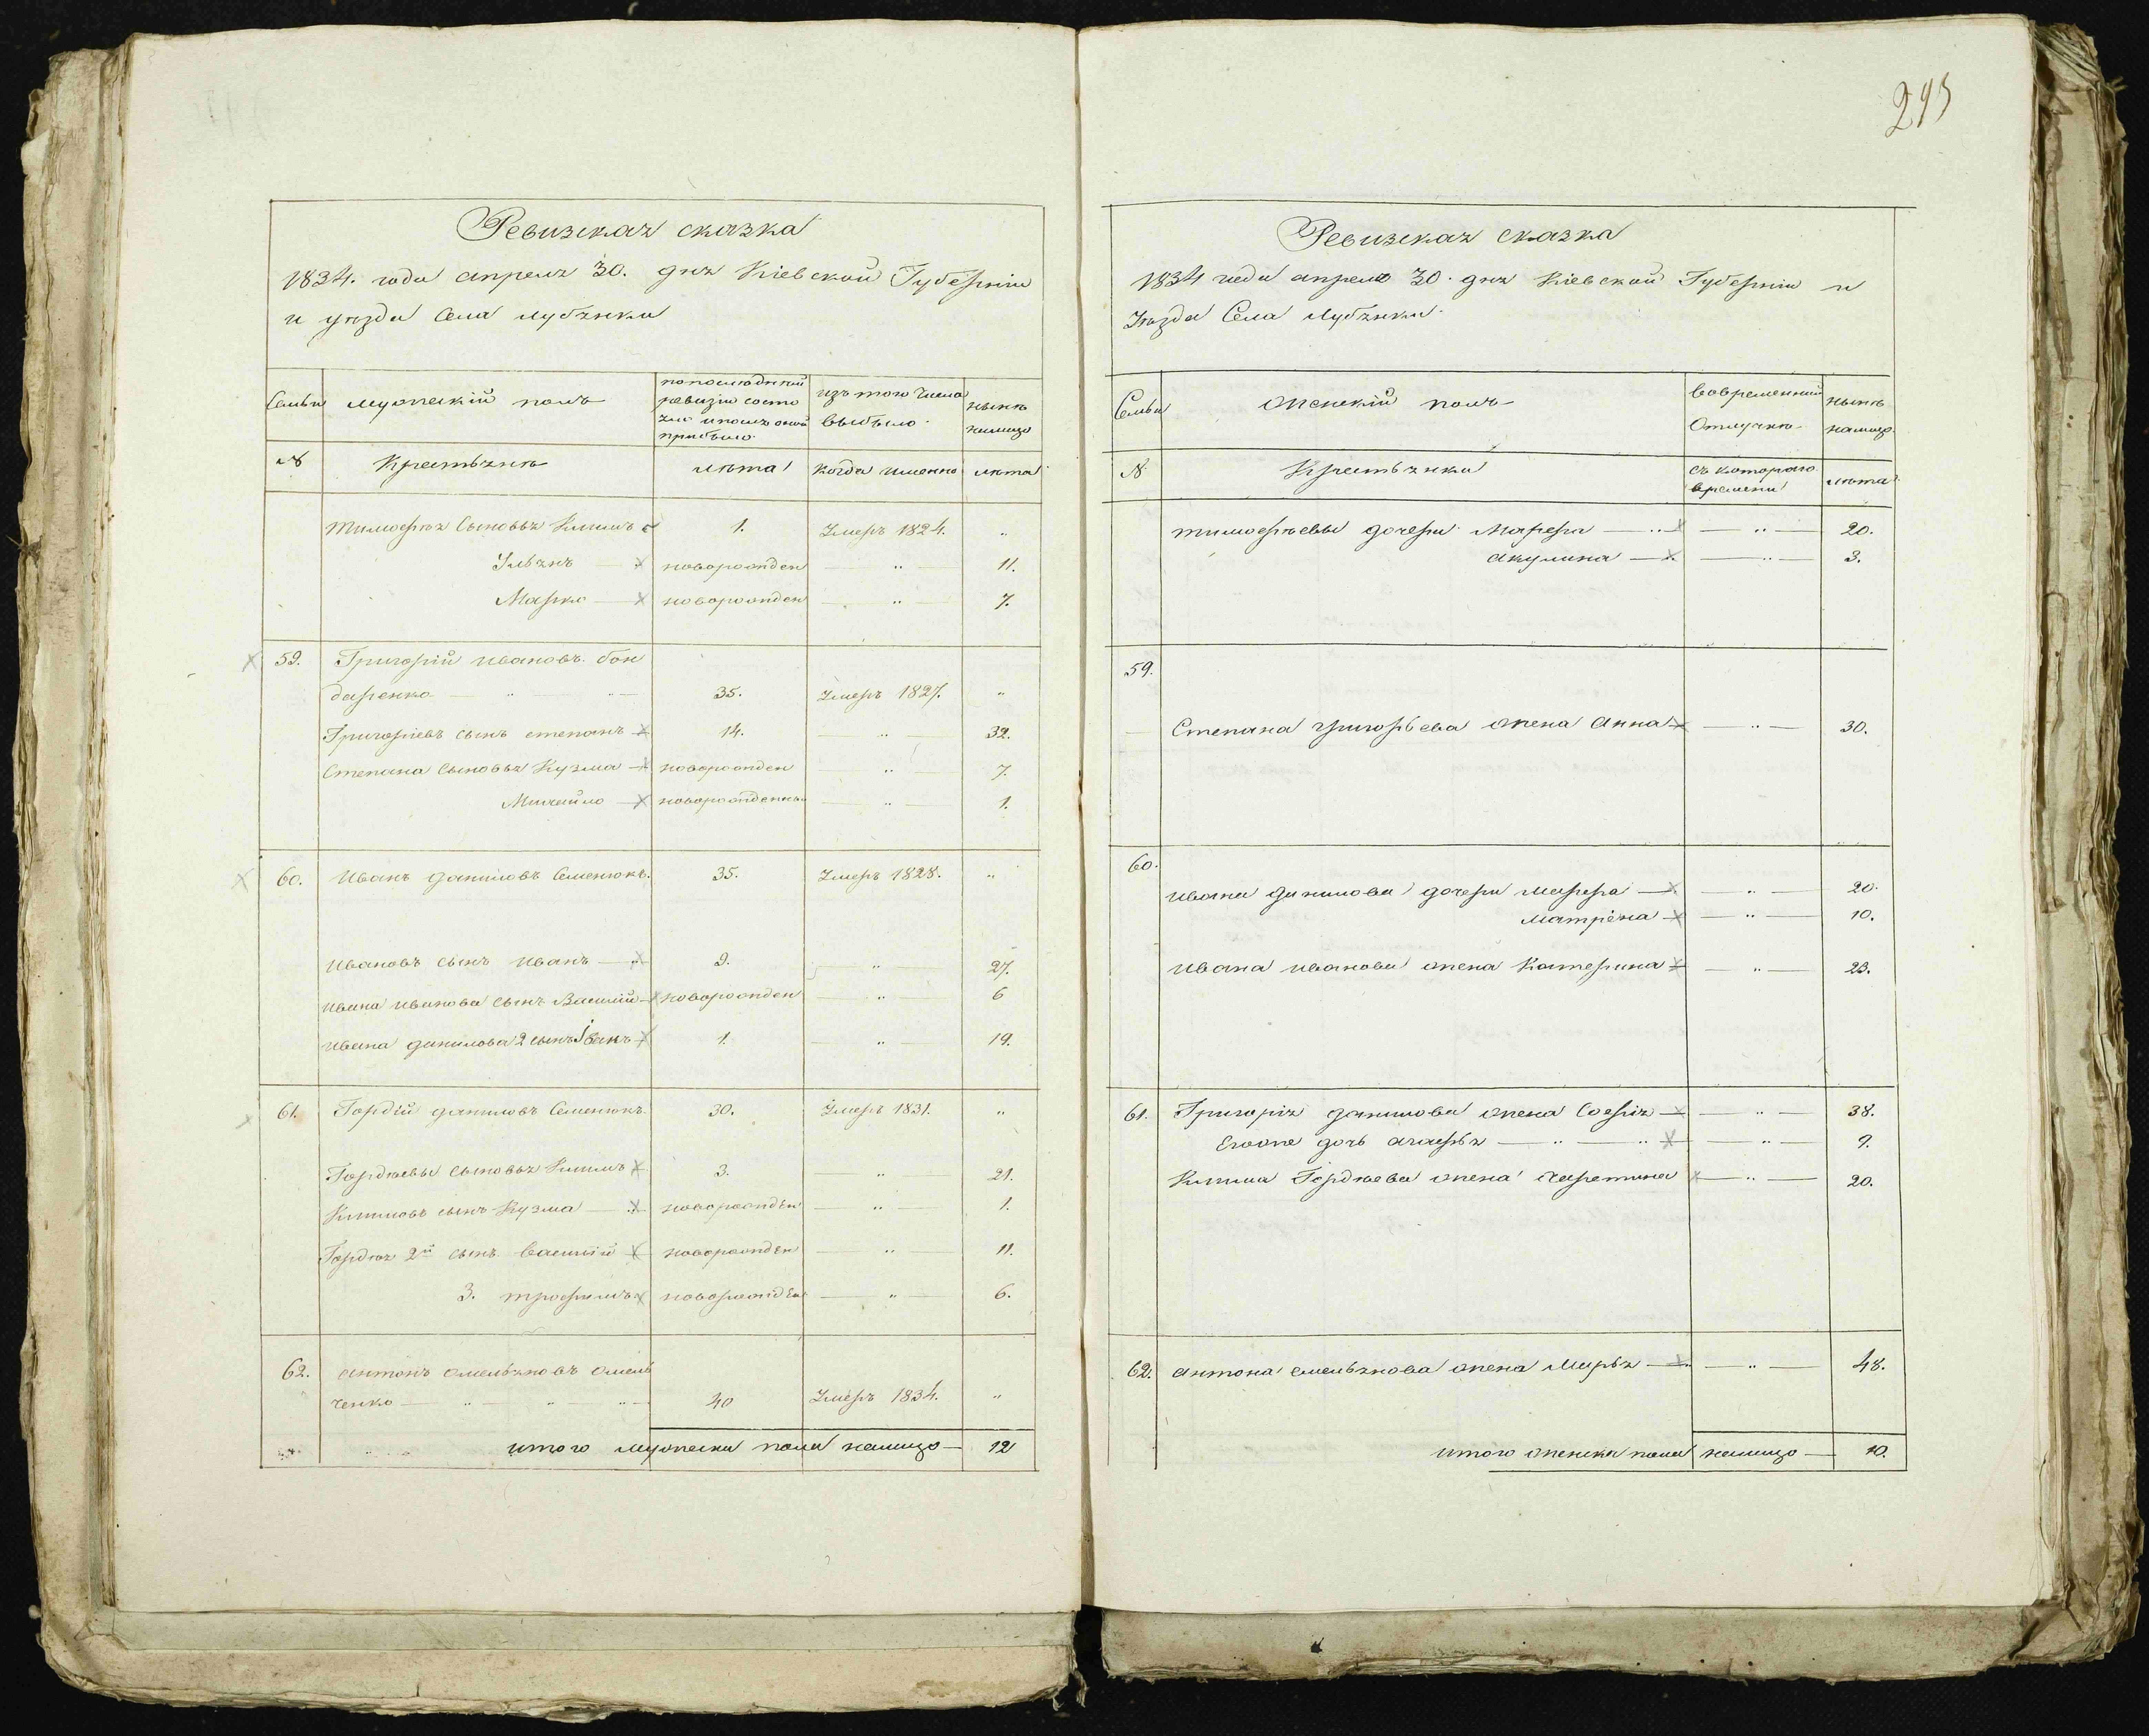 Ревизская сказка
1834. года апреля 30. дня Кіевской Губерніи
и уѣзда Села Лубянки
Семьи
мужескій полъ
по последней
ревизіи состо
яло и после оной
прибыло
изъ того числа
выбыло
нынѣ
налицо
№
Крестьянѣ
лѣта
когда именно
лѣта
Тимофѣя Сыновья Климъ 1. Умеръ 1824. "
Ульянъ — новорожден — " — 11.
Марко — новорожден — " — 7.
59. Григорій Ивановъ Бон
даренко — " — " — 35. Умеръ 1827. "
Григоріевъ сынъ Степанъ 14. — " — 32.
Степана Сыновья Кузма новорожден — " — 7.
Михайло — новорожденны — " — 1.
60. Иванъ Даниловъ Семенюкъ. 35. Умеръ 1828. "
Ивановъ сынъ Иванъ — 9. " 27.
Ивана Иванова сынъ Василій новорожден — " 6
Ивана Данилова 2 сынъ Іванъ 1. — " — 19.
61. Гордій Даниловъ Семенюкъ. 30. Умеръ 1831. "
Гордѣевы Сыновья Климъ 3. " 21.
Климовъ сынъ Кузма — новорожден — " — 1.
Гордѣя 2й сынъ Василій новорожден " 11.
3. Трофимъ новорожден — " — 6.
62. Антонъ Омельяновъ Омель
ченко — " — " — " — 40 Умеръ 1834. "
итого мужеска пола налицо — 12
295
Ревизская сказка
1834 года апреля 30. дня Кіевской Губерніи и
Уѣзда Села Лубянки.
Семьи
женскій полъ
Вовременной
Отлучкѣ
нынѣ
налицо.
№
Крестьянки
съ котораго
времени
лѣта
Тимофѣевы дочери Марфа — " — — " — 20.
Акулина — — " — 3.
59.
Степана Григорьева жена Анна — " — 30.
60.
Ивана Данилова дочери Марфа — — " — 20.
Матрена — " — 10.
Ивана Иванова жена Катерина — " — 23.
61. Григорія Данилова жена Софія — — " — 38.
Егоже дочь Агафья — " — " — " — 9.
Клима Гордѣева жена Харетина — " — 20.
62. Антона Емельянова жена Марья — — " — 48.
итого женска пола налицо — 10.